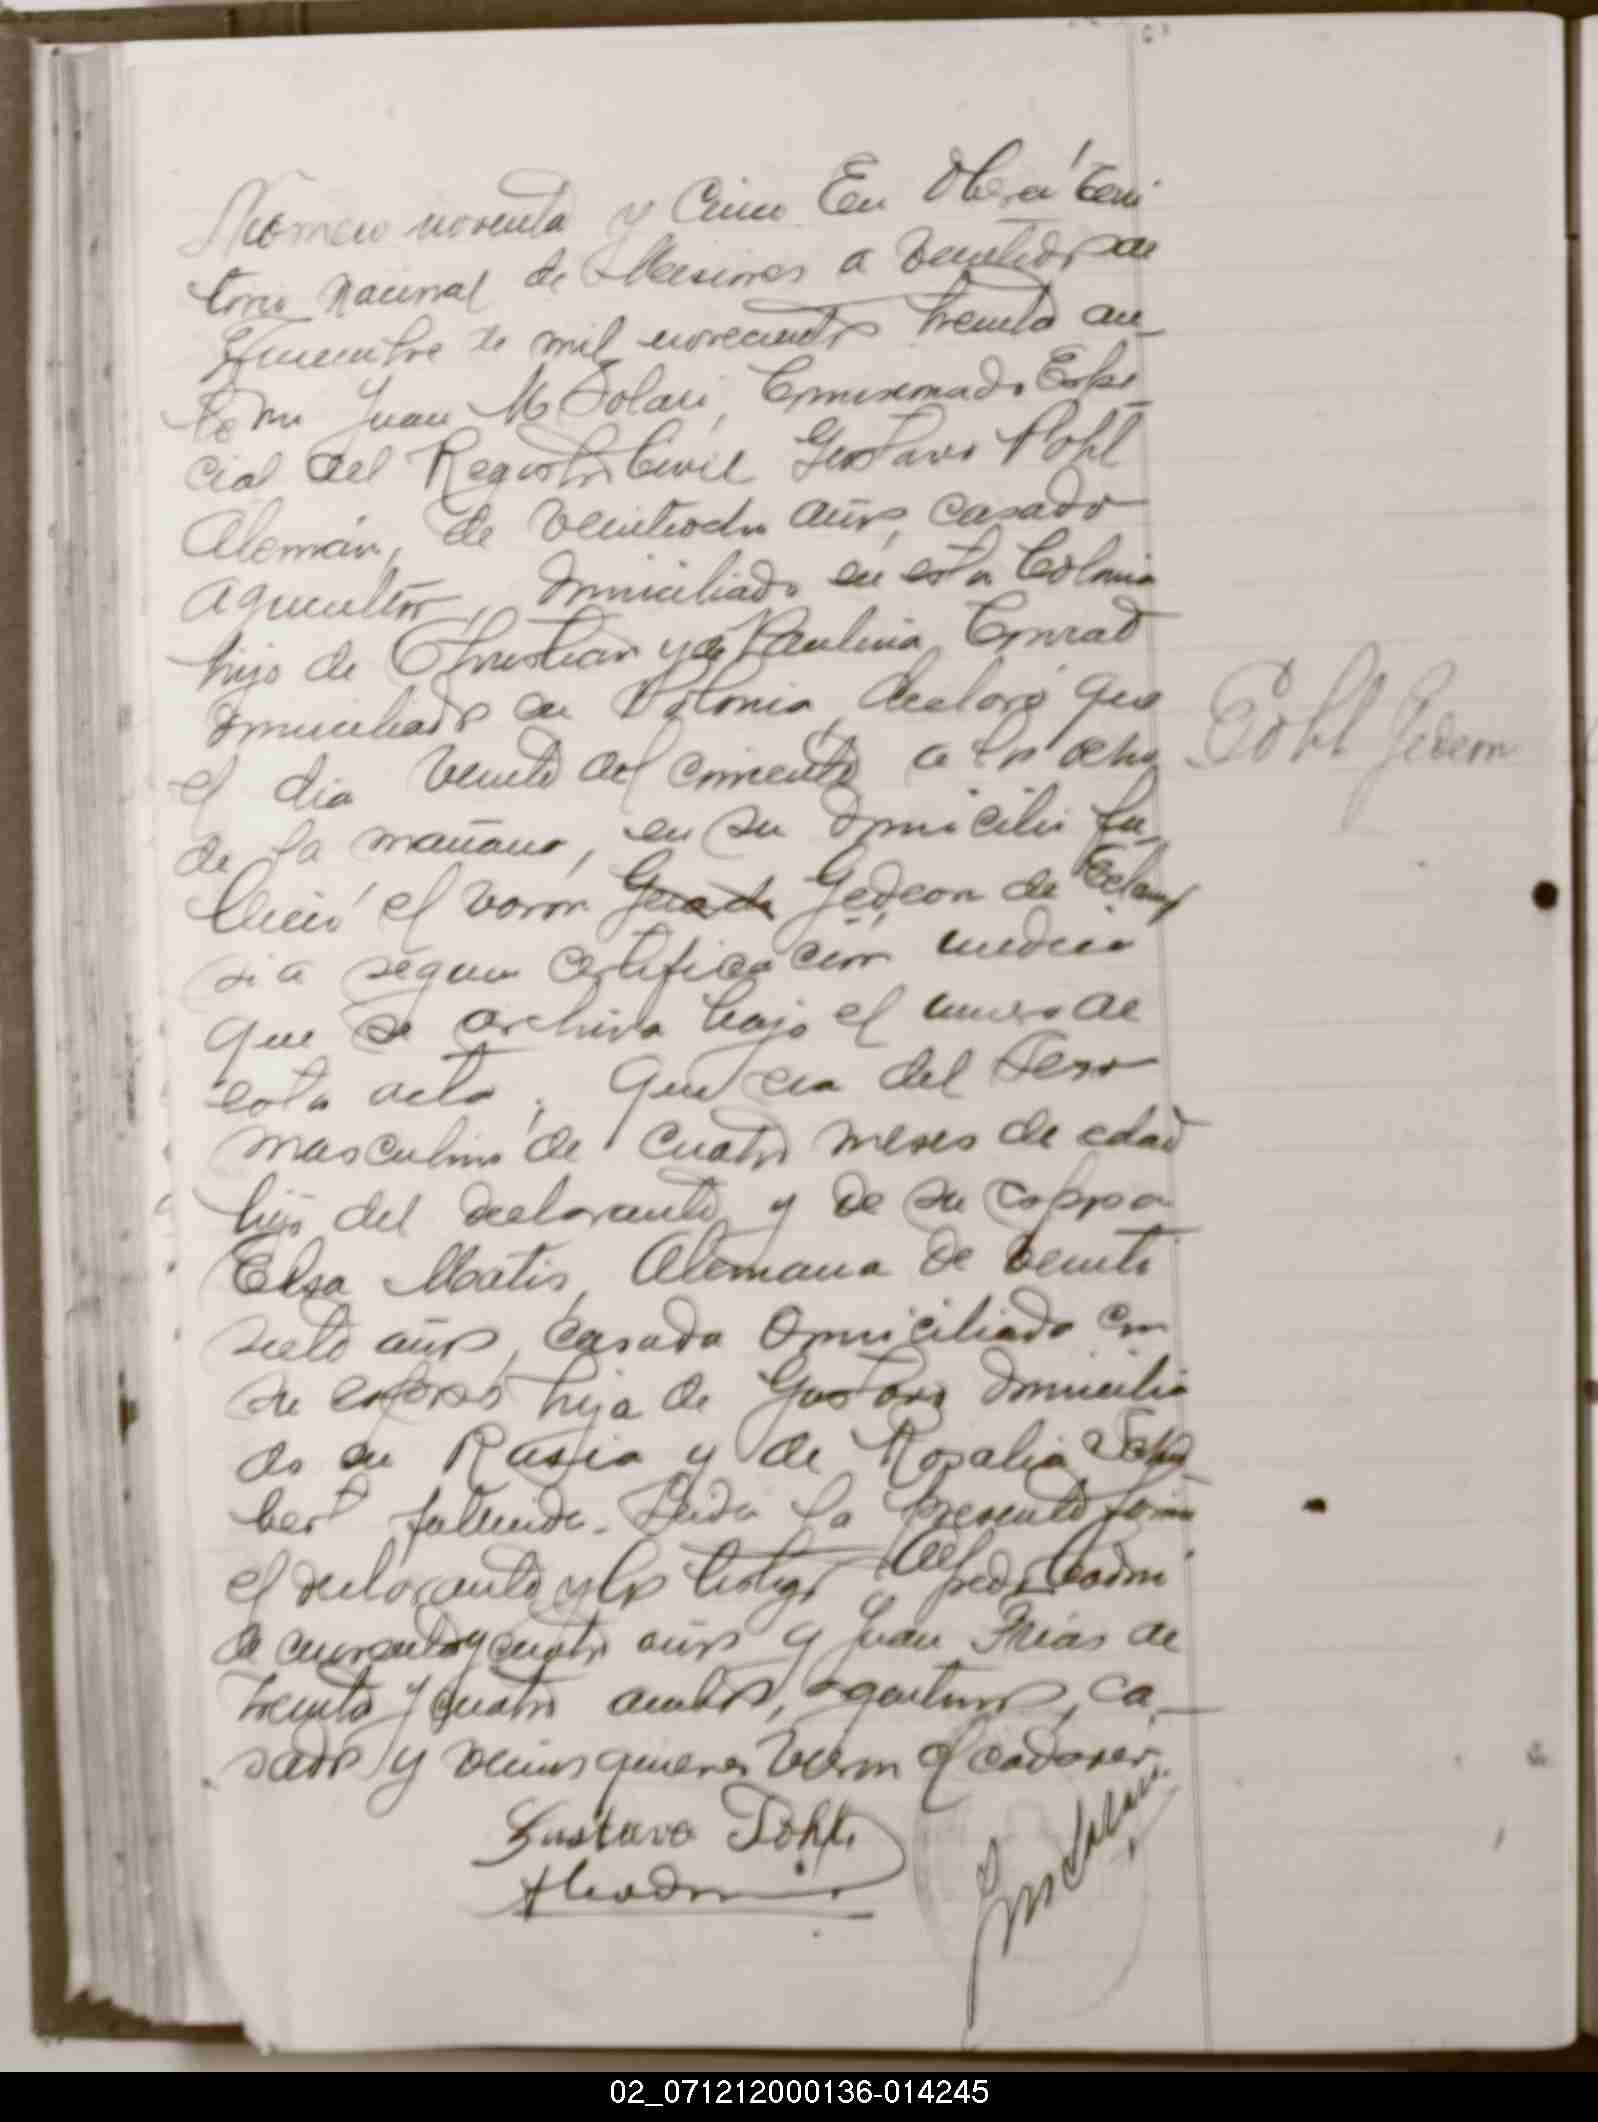 Número noventa y Cinco En Oberá terri
torio Nacional de Misiones a veintidos de
Diciembre de mil novecientos treinta an-
te mi Juan M Solari, Comisionado Espe
cial del Registro Civil Gustavo Pohl
Alemán, de veintiocho años, casado
agricultor, domiciliado en esta Colonia
hijo de Christian y de Paulina Conrad
domiciliados en Polonia, declaró que
el dia veinte del corriente a las ocho
de la mañana, en su domicilio fa-
lleció el varon Gedeon de Eclamp
sia segun certificación medica
que se archiva bajo el numero de
esta acta; Que era del sexo
masculino de cuatro meses de edad
hijo del declarante y de su esposa
Elsa Matis, Alemana de veinti
siete años, casada domiciliada con
su esposo hija de Gustavo domicilia
do en Rusia y de Rosalia Schu
bert fallecida. Leida la presente firma
el declarante y los testigos Alfredo
de cuarenta y cuatro años y Juan Frias de
treinta y cuatro ambos, agricultores, ca-
sados y vecinos quienes vieron el cadaver.
Pohl Gedeon
Gustavo Pohl